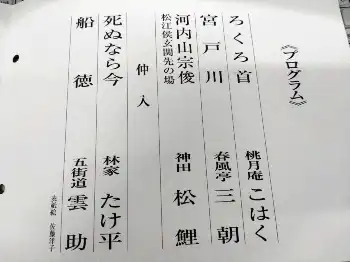 《プログラム》
ろくろ首 桃月庵 こはく
宮戸川 春風亭 三朝
河内山宗俊 神田 松鯉
松江侯玄関先の場
仲入
死ぬなら今 林家 たけ平
船徳 五街道 雲助
表紙絵 佐藤洋子